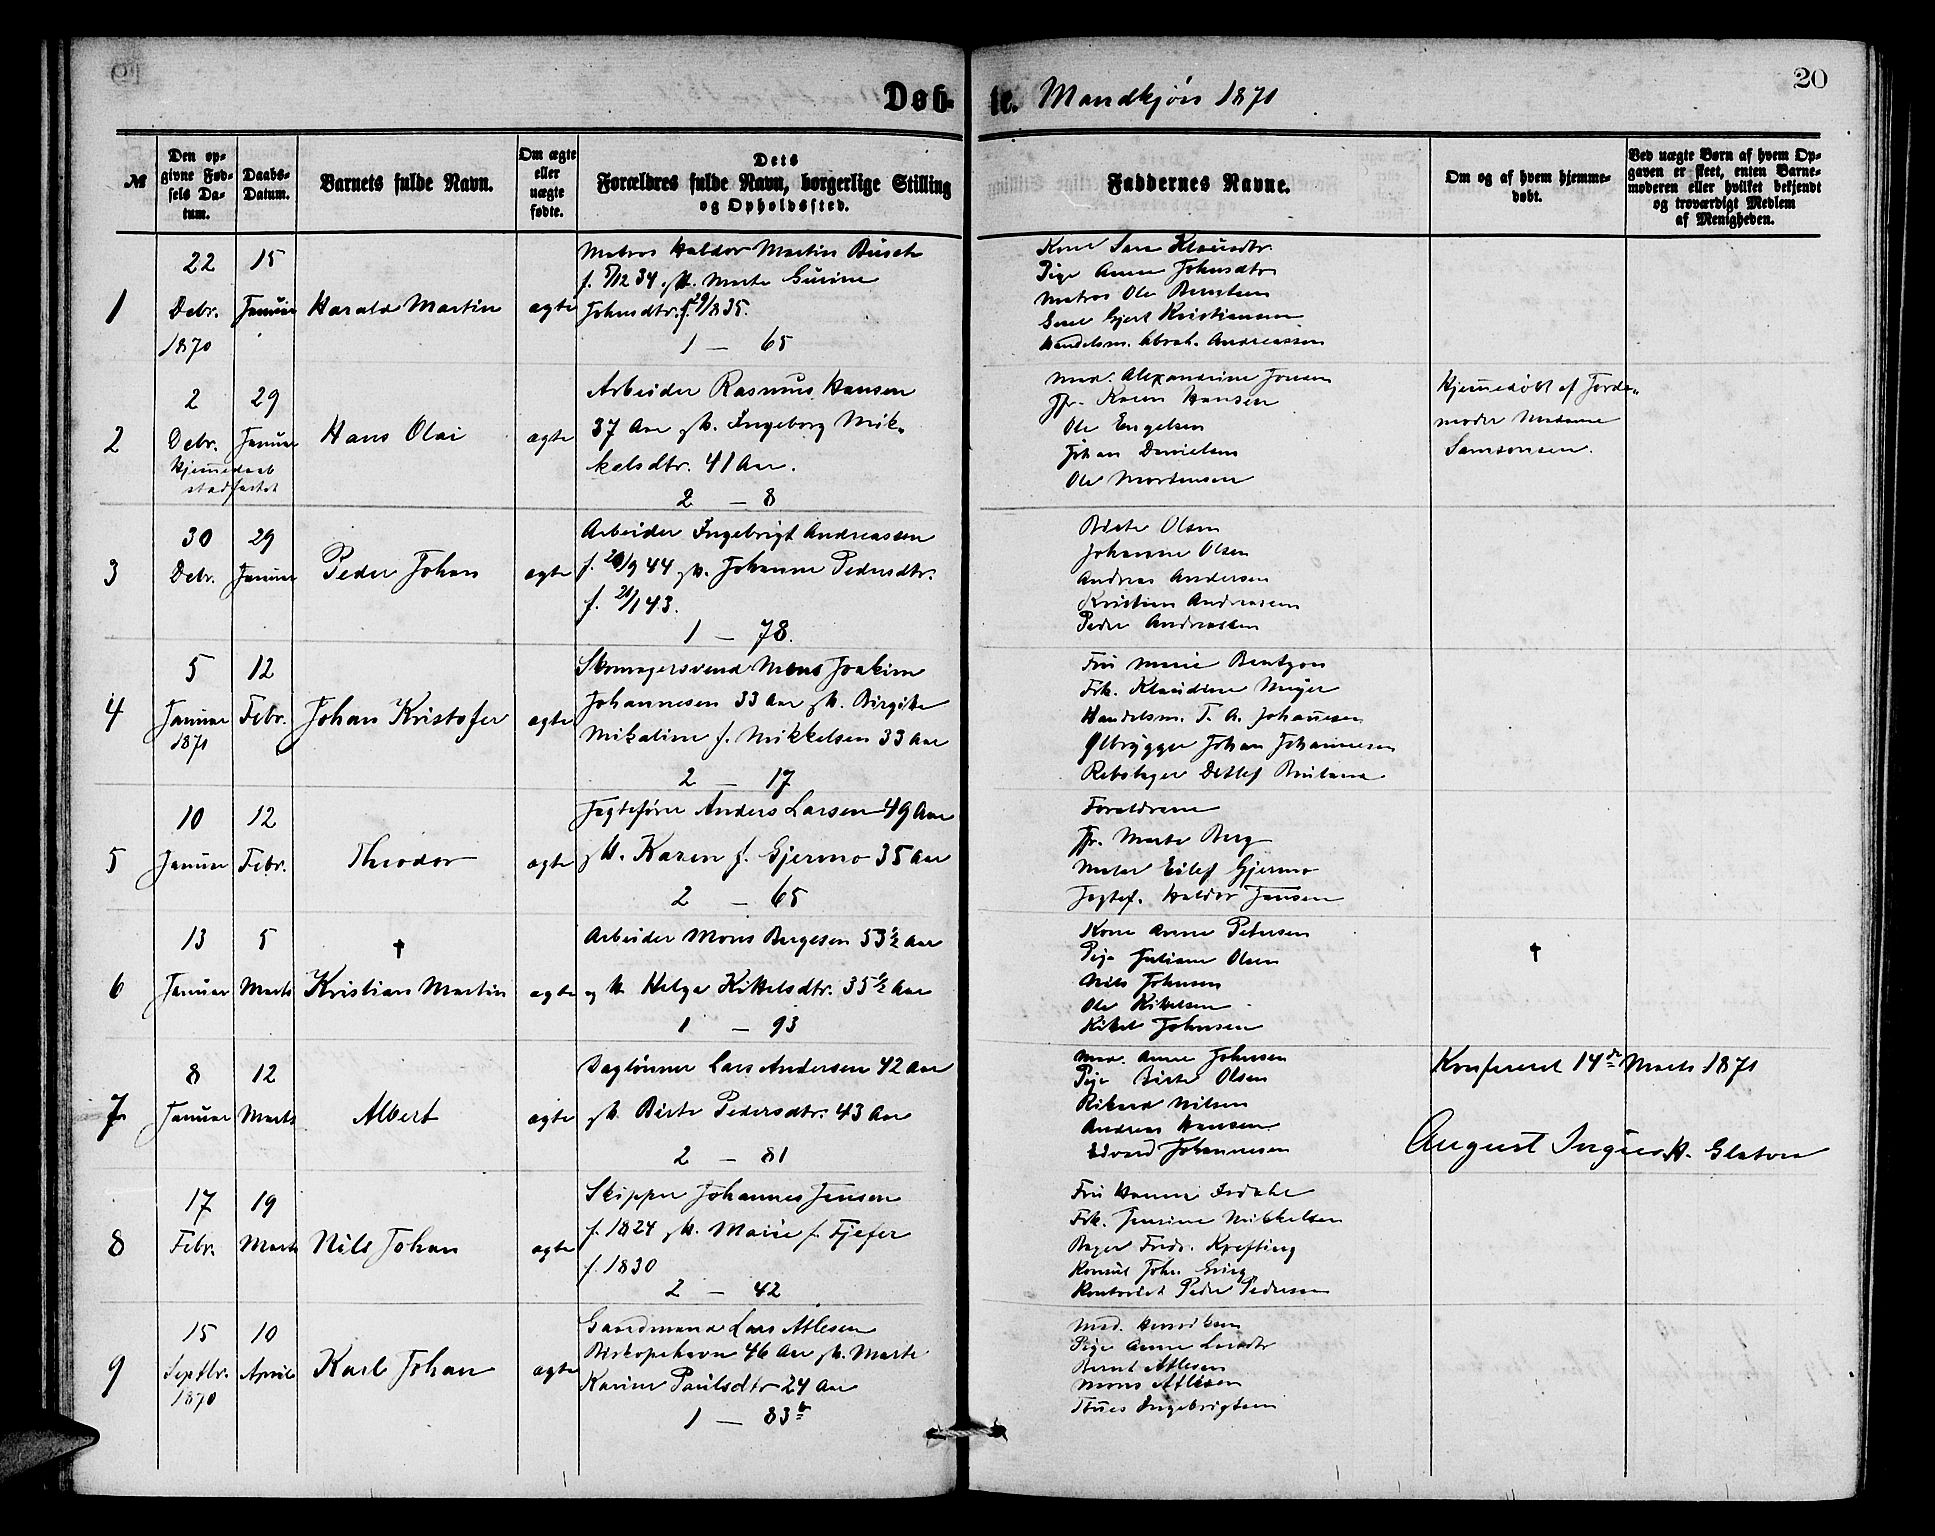 20
Døb- te. Mandkjøn 1871
№
Den opgivne Fødsels Datum.
Daabs-Datum.
Barnets fulde Navn.
Om ægte eller uægte fødte.
Dets Forældres fulde Navn, borgerlige Stilling og Opholdssted.
Faddernes Navne.
Om og af hvem hjemmedøbt.
Ved uægte Børn af hvem Opgaven er skeet, enten Barnemoderen eller hvilket bekjendt og troværdigt Medlem af Menigheden.
1
22 Debr. 1870
15 Januar
Harald Martin
ægte
Matros Haldor Martin Busch
f. 5/12 34 & H. Marte Gurine
Johnsdtr. f. 29/8 35.
1 — 65
Kone Sara Klausdtr
Pige Anne Johnsdtr
Matros Ole Berntsen
Gjert Kristiansen
Handelsm. Abrah. Andreassen
2
2 Debr.
hjemmedaab
stadfæstet
29 Januar
Hans Olai
ægte
Arbeider Rasmus Hansen
37 Aar & H. Ingeborg Mik-
kelsdtr. 41 Aar.
2 — 8
Mad. Alexandrine Jonsen
Jfr. Karen Hansen
Ole Engelsen
Johan Danielsen
Ole Mortensen
Hjemmedøbt af Jorde-
moder Madame
Samsonsen.
3
30 Debr.
29 Januar
Peder Johan
ægte
Arbeider Ingebrigt Andreassen
f. 20/9 44 & H. Johanne Pedersdtr.
f. 21/1 43.
1 — 78.
Birte Olsen
Johanne Olsen
Andreas Andersen
Kristian Andreasen
Peder Andreassen
4
5 Januar 1871
12 Febr.
Johan Kristofer
ægte
Skomagersvend Mons Joakim
Johannesen 33 Aar & H. Birgitte
Mikaline f. Mikkelsen 33 Aar
2 — 17
Fru Marie Bentzon
Frk. Klaudine Meyer
Handelsm. T. A. Johannesen
Ølbrygger Johan Johannesen
Rebslager Detlef
5
10 Januar
12 Febr.
Theodor
ægte
Jagtefører Anders Larsen 49 Aar
& H. Karen f. Gjermo 35 Aar
2 — 65
Forældrene
Jfr. Marte Berg
Maler Eilef Gjermo
Jagtef. Haldor Jansen
6
13 Januar
5 Marts
†
Kristian Martin
ægte
Arbeider Mons Børgesen 53½ Aar
& H. Helga Kittelsdtr. 35½ Aar
1 — 93
Kone Anne Petersen
Pige Juliane Olsen
Nils Johnsen
Ole Kittelsen
Kittel Johnsen
†
7
8 Januar
12 Marts
Albert
ægte
Daglønner Lars Andersen 42 Aar
& H. Birte Pedersdtr. 43 Aar
2 — 81
Mad. Anne Johnsen
Pige Birte Olsen
Rikard Nilsen
Andreas Hansen
Edvard Johannesen
Konfereret 14de Marts 1871
August Ingier H.
8
17 Febr.
19 Marts
Nils Johan
ægte
Skipper Johannes Jensen
f. 1824 & H. Marie f. Fjefer
f. 1830
2 — 42
Fru Hanna Isdahl
Frk. Jensine Mikkelsen
Bager Fredr. Krefting
Konsul Joh. Grieg
Kontorist Peder Pedersen
9
15 Septbr. 1870
10 April
Karl Johan
ægte
Gaardmand Lars Atlesen
Biskopshavn 46 Aar & H. Marte
Karine Paulsdtr 24 Aar
1 — 83b
Mad. Henriksen
Pige Anne Larsdtr
Bernt Atlesen
Mons Atlesen
Ingebrigtsen